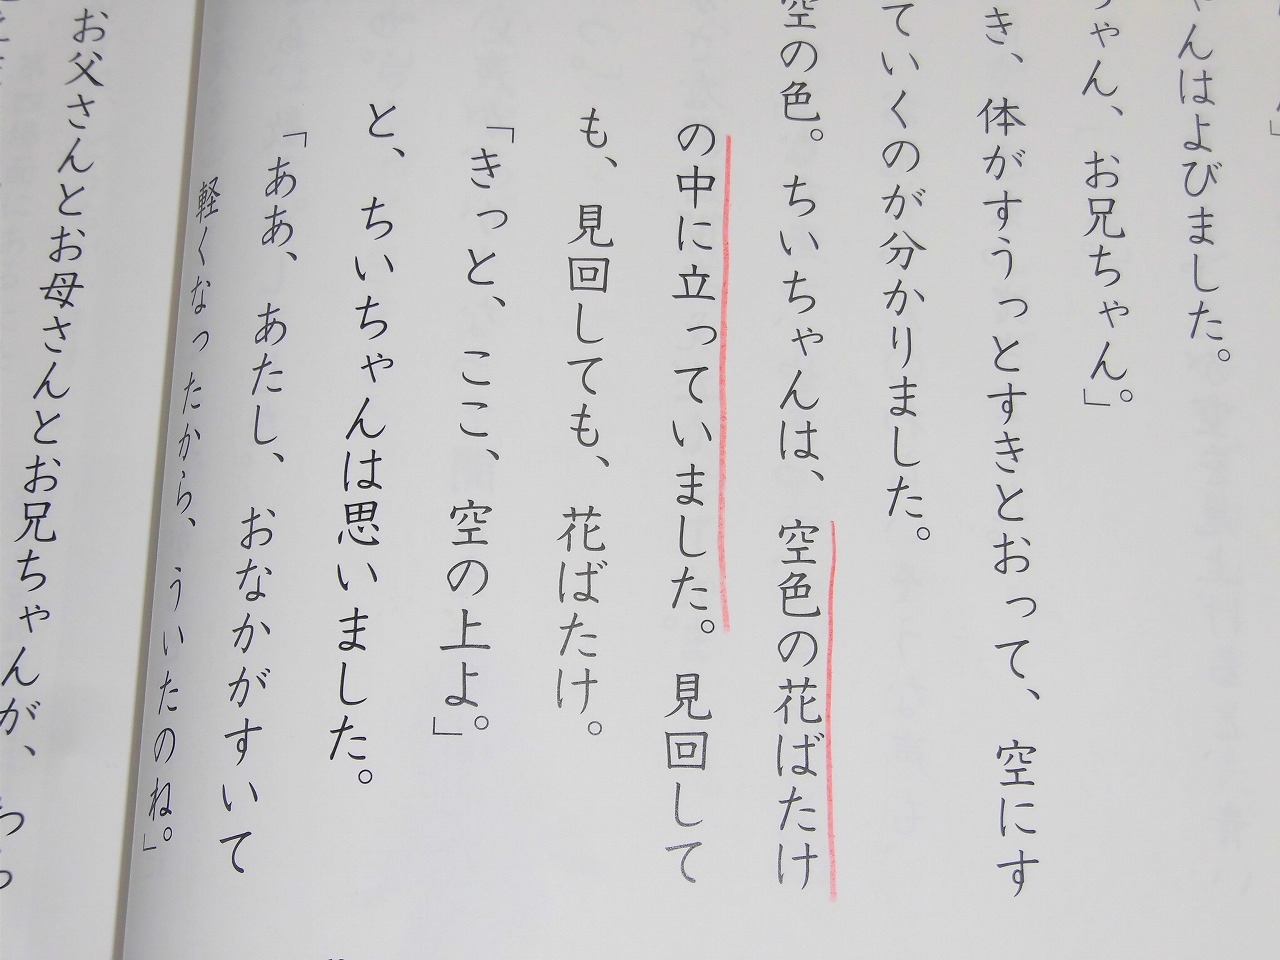 ゃんはよびました。
ちゃん、お兄ちゃん。」
き、体がすうっとすきとおって、空にす
ていくのが分かりました。
空の色。ちいちゃんは、空色の花ばたけ
の中に立っていました。見回して
も、見回しても、花ばたけ。
「きっと、ここ、空の上よ。」
と、ちいちゃんは思いました。
「ああ、あたし、おなかがすいて
軽くなったから、ういたのね。」
お父さんとお母さんとお兄ちゃんが、